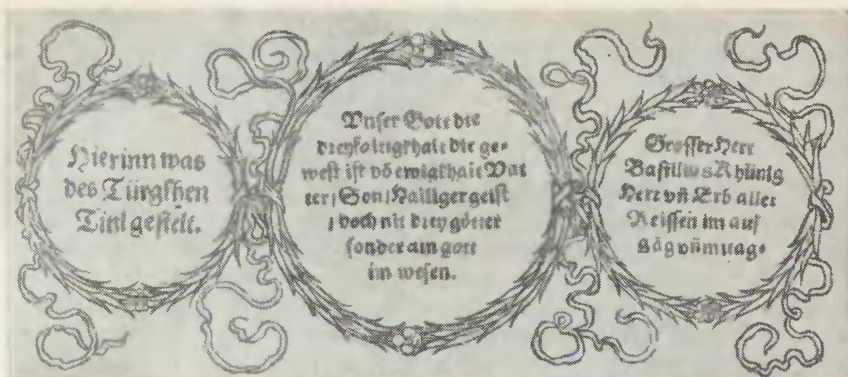 Hierinn was
des Türgkhen
Titl gestelt.
Vnser Gott die
dreyfaltigkhait die ge⸗
west ist võ ewigkhait Vat
ter / Son / Hailliger geist
/ doch nit drey götter
sonder ain gott
im wesen.
Grosser Herr
Basilius Khünig
Herr vñ Erb aller
Reissen im auf
gãg vñ mitag⸗